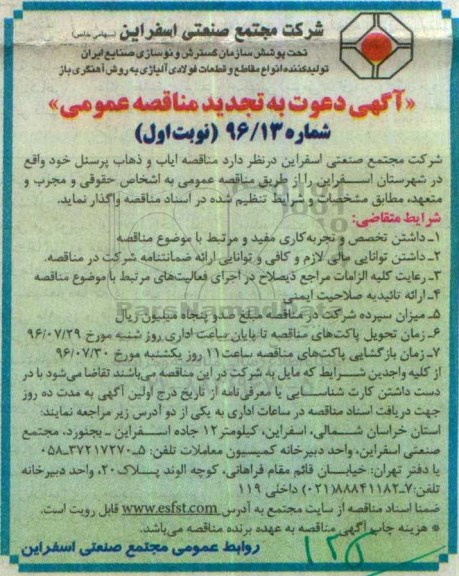 شرکت مجتمع صنعتی اسفراین (سهامی خاص)
تحت پوشش سازمان گسترش و نوسازی صنایع ایران
تولیدکننده انواع مقاطع و قطعات فولادی آلیاژی به روش آهنگری باز
«آگهی دعوت به تجدید مناقصه عمومی»
شماره ۹۶/۱۳ (نوبت اول)
شرکت مجتمع صنعتی اسفراین درنظر دارد مناقصه ایاب و ذهاب پرسنل خود واقع
در شهرستان اسفراین را از طریق مناقصه عمومی به اشخاص حقوقی و مجرب و
متعهد، مطابق مشخصات و شرایط تنظیم شده در اسناد مناقصه واگذار نماید.
شرایط متقاضی:
۱ـ داشتن تخصص و تجربه کاری مفید و مرتبط با موضوع مناقصه
۲ـ داشتن توانایی مالی لازم و کافی و توانایی ارائه ضمانتنامه شرکت در مناقصه.
۳ـ رعایت کلیه الزامات مراجع ذیصلاح در اجرای فعالیت‌های مرتبط با موضوع مناقصه
۴ـ ارائه تائیدیه صلاحیت ایمنی
۵ـ میزان سپرده شرکت در مناقصه مبلغ صدو پنجاه میلیون ریال
۶ـ زمان تحویل پاکت‌های مناقصه تا پایان ساعت اداری روز شنبه مورخ ۹۶/۰۷/۲۹
۷ـ زمان بازگشایی پاکت‌های مناقصه ساعت ۱۱ روز یکشنبه مورخ ۹۶/۰۷/۳۰
از کلیه واجدین شرایط که مایل به شرکت در این مناقصه می‌باشند تقاضا می‌شود با در
دست داشتن کارت شناسایی یا معرفی‌نامه از تاریخ درج اولین آگهی به مدت ده روز
جهت دریافت اسناد مناقصه در ساعات اداری به یکی از دو آدرس زیر مراجعه نمایند:
استان خراسان شمالی، اسفراین، کیلومتر ۱۲ جاده اسفراین ـ بجنورد، مجتمع
صنعتی اسفراین، واحد دبیرخانه کمیسیون معاملات تلفن: ۵ـ۳۷۲۱۷۲۷۰ـ۰۵۸
یا دفتر تهران: خیابان قائم مقام فراهانی، کوچه الوند پلاک ۲۰، واحد دبیرخانه
تلفن: ۷ـ۸۸۸۴۱۱۸۲(۰۲۱) داخلی ۱۱۹
ضمنا اسناد مناقصه از سایت مجتمع به آدرس www.esfst.com قابل رویت است.
* هزینه چاپ آگهی مناقصه به عهده برنده مناقصه می‌باشد.
روابط عمومی مجتمع صنعتی اسفراین